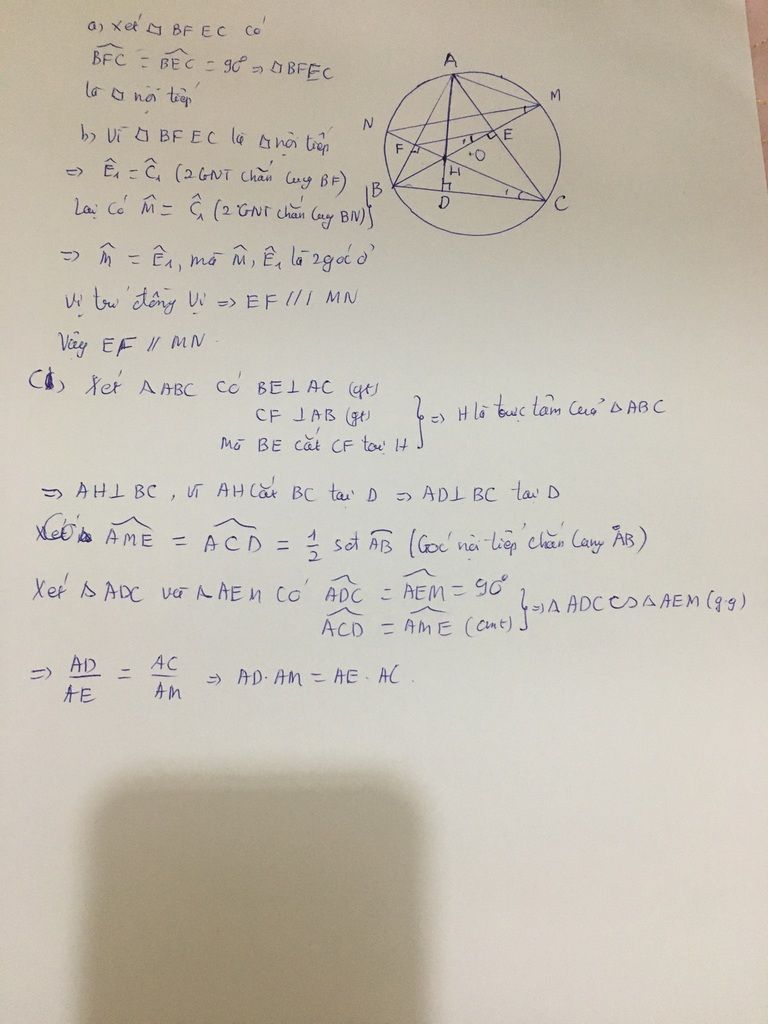 a) Xét □ BFEC có
BFC = BEC = 90° => □ BFEC
là □ nội tiếp
b) Vì □ BFEC là □ nội tiếp
=> Ê₁ = Ĉ₁ (2 GNT chắn cung BF)
Lại có M̂ = Ĉ₁ (2 GNT chắn cung BN)
=> M̂ = Ê₁, mà M̂, Ê₁ là 2 góc ở
vị trí đồng vị => EF // MN
Vậy EF // MN.
A
M
N
E
F
O
H
B
D
C
C), Xét △ABC có BE⊥AC (gt)
CF ⊥AB (gt)
Mà BE cắt CF tại H
=> H là trực tâm của △ABC
=> AH⊥BC, vì AH cắt BC tại D => AD⊥BC tại D
Có AME = ACD = 1/2 sđ AB (Góc nội tiếp chắn cung AB)
Xét △ADC và △AEM có ADC = AEM = 90°
ACD = AME (cmt)
=> △ADC ∽ △AEM (g.g)
=> AD/AE = AC/AM => AD.AM = AE.AC.